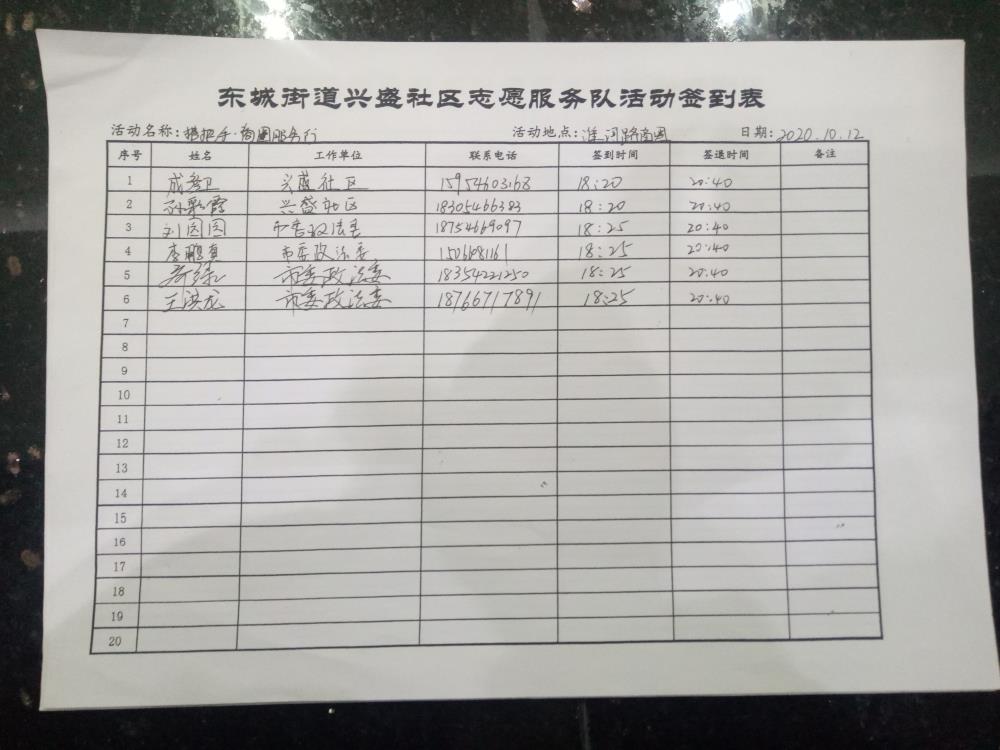 东城街道兴盛社区志愿服务队活动签到表
活动名称：搭把手·商圈服务行 活动地点：淮河路商圈 日期：2020.10.12
序号 姓名 工作单位 联系电话 签到时间 签退时间 备注
1 兴盛社区 15954603168 18:20 20:40
2 孙彩霞 兴盛社区 18305466383 18:20 20:40
3 刘园园 市委政法委 18754669097 18:25 20:40
4 李鹏真 市委政法委 18:25 20:40
5 市委政法委 18354221250 18:25 20:40
6 王洪龙 市委政法委 18766717891 18:25 20:40
7
8
9
10
11
12
13
14
15
16
17
18
19
20